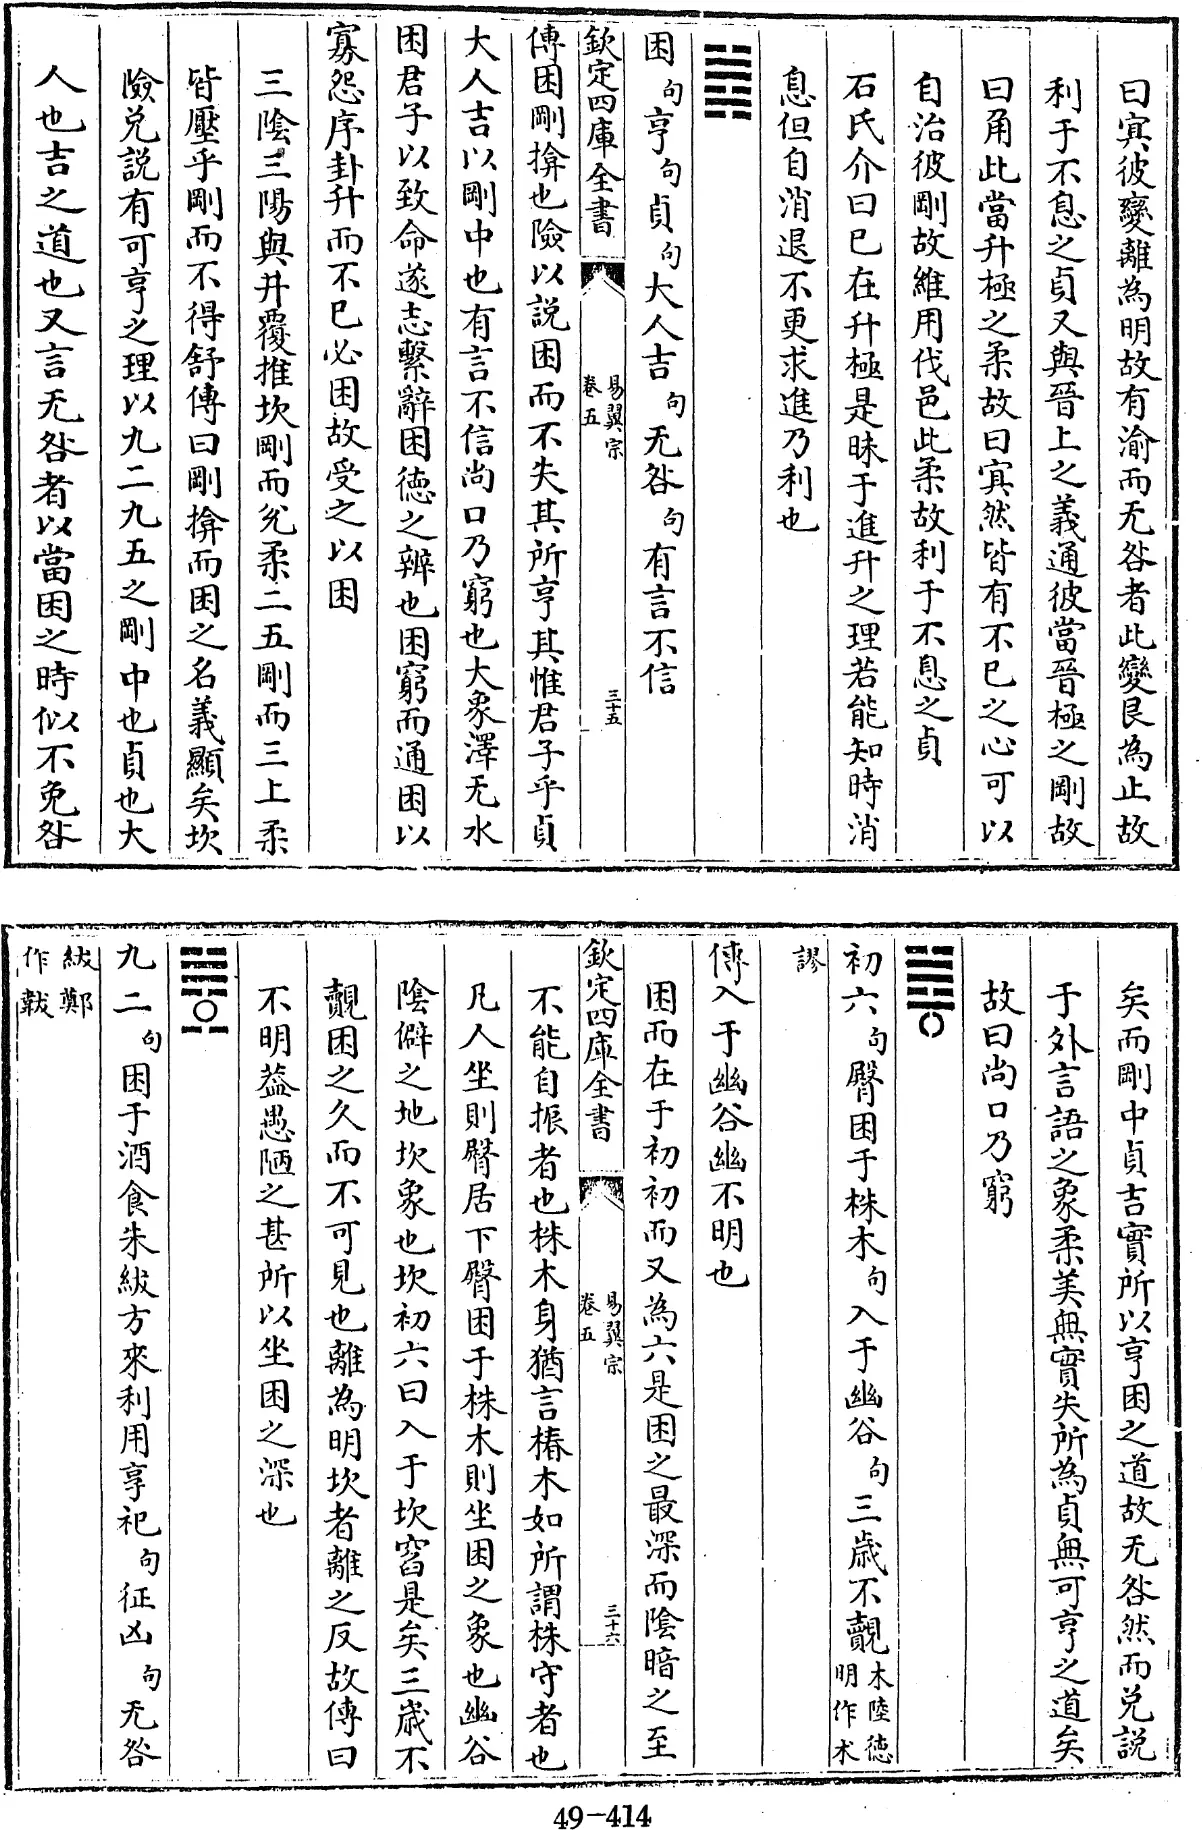 曰㝠彼變離為明故有渝而无咎者此變艮為止故
利于不息之貞又與晉上之義通彼當晉極之剛故
曰角此當升極之柔故曰㝠然皆有不已之心可以
自治彼剛故維用伐邑此柔故利于不息之貞
石氏介曰已在升極是昧于進升之理若能知時消
息但自消退不更求進乃利也
困句亨句貞句大人吉句无咎句有言不信
欽定四庫全書
易翼宗
卷五
三十五
傳困剛揜也險以説困而不失其所亨其惟君子乎貞
大人吉以剛中也有言不信尚口乃窮也大象澤无水
困君子以致命遂志繫辭困德之辨也困窮而通困以
寡怨序卦升而不已必困故受之以困
三陰三陽與井覆推坎剛而兊柔二五剛而三上柔
皆壓乎剛而不得舒傳曰剛揜而困之名義顯矣坎
險兊説有可亨之理以九二九五之剛中也貞也大
人也吉之道也又言无咎者以當困之時似不免咎
矣而剛中貞吉實所以亨困之道故无咎然而兊説
于外言語之象柔美無實失所為貞無可亨之道矣
故曰尚口乃窮
初六句臀困于株木句入于幽谷句三歲不覿木陸德
明作木
謬
傳入于幽谷幽不明也
困而在于初初而又為六是困之最深而陰暗之至
欽定四庫全書
易翼宗
卷五
三十六
不能自振者也株木身猶言椿木如所謂株守者也
凡人坐則臀居下臀困于株木則坐困之象也幽谷
陰僻之地坎象也坎初六曰入于坎窞是矣三歲不
覿困之久而不可見也離為明坎者離之反故傳曰
不明葢愚陋之甚所以坐困之深也
九二句困于酒食朱紱方來利用享祀句征凶句无咎
紱鄭
作韍
49-414